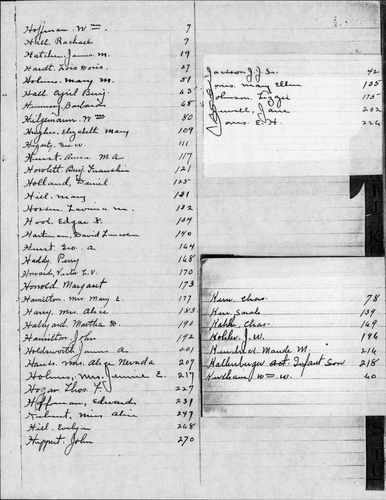 Hoffman, Wm 7
Hull Rachael 9
Hatcher, James M. 19
Hardt, Lois Doris 27
Holmes, Mary M. 51
Hall April Benj. 65
Barbara 68
Hilgemann, Wm 80
Hughes, Elizabeth Mary 109
Geo. W 111
Hurst, Anna M A 117
Howlett Benj. Franklin 121
Holland, Daniel 125
Hill, Mary 131
Lavina M. 132
Hood, Edgar F. 134
Hartman, David Lincoln 140
Hurst Geo. A 164
Haddy, Perry 168
Howard, L. V. 170
Honold Margaret 173
Hamilton, Mrs Mary E. 177
Harry, Mrs. Alice 183
Martha D. 190
Hamilton, John 192
Holdsworth, James A. 201
Mrs. Aliza Nevada 207
Holmes, Mrs. Jennie E. 217
Hogan, Thos. F. 227
Hoffman, Edward 231
Miss Alice 249
Hill, Evelyn 268
Huppert, John 270
Jackson, J. J. Sr. 42
Jones, Mary Ellen 135
Johnson, Lizzie 175
Jewell, Jane 202
Jones, E. H. 226
Kerr, Chas. 78
Kerr, Sarah 139
Chas. 169
Kohler, J. W 196
Kindred, Maude M. 214
Infant Son 218
Kirkham, Wm. W. 40